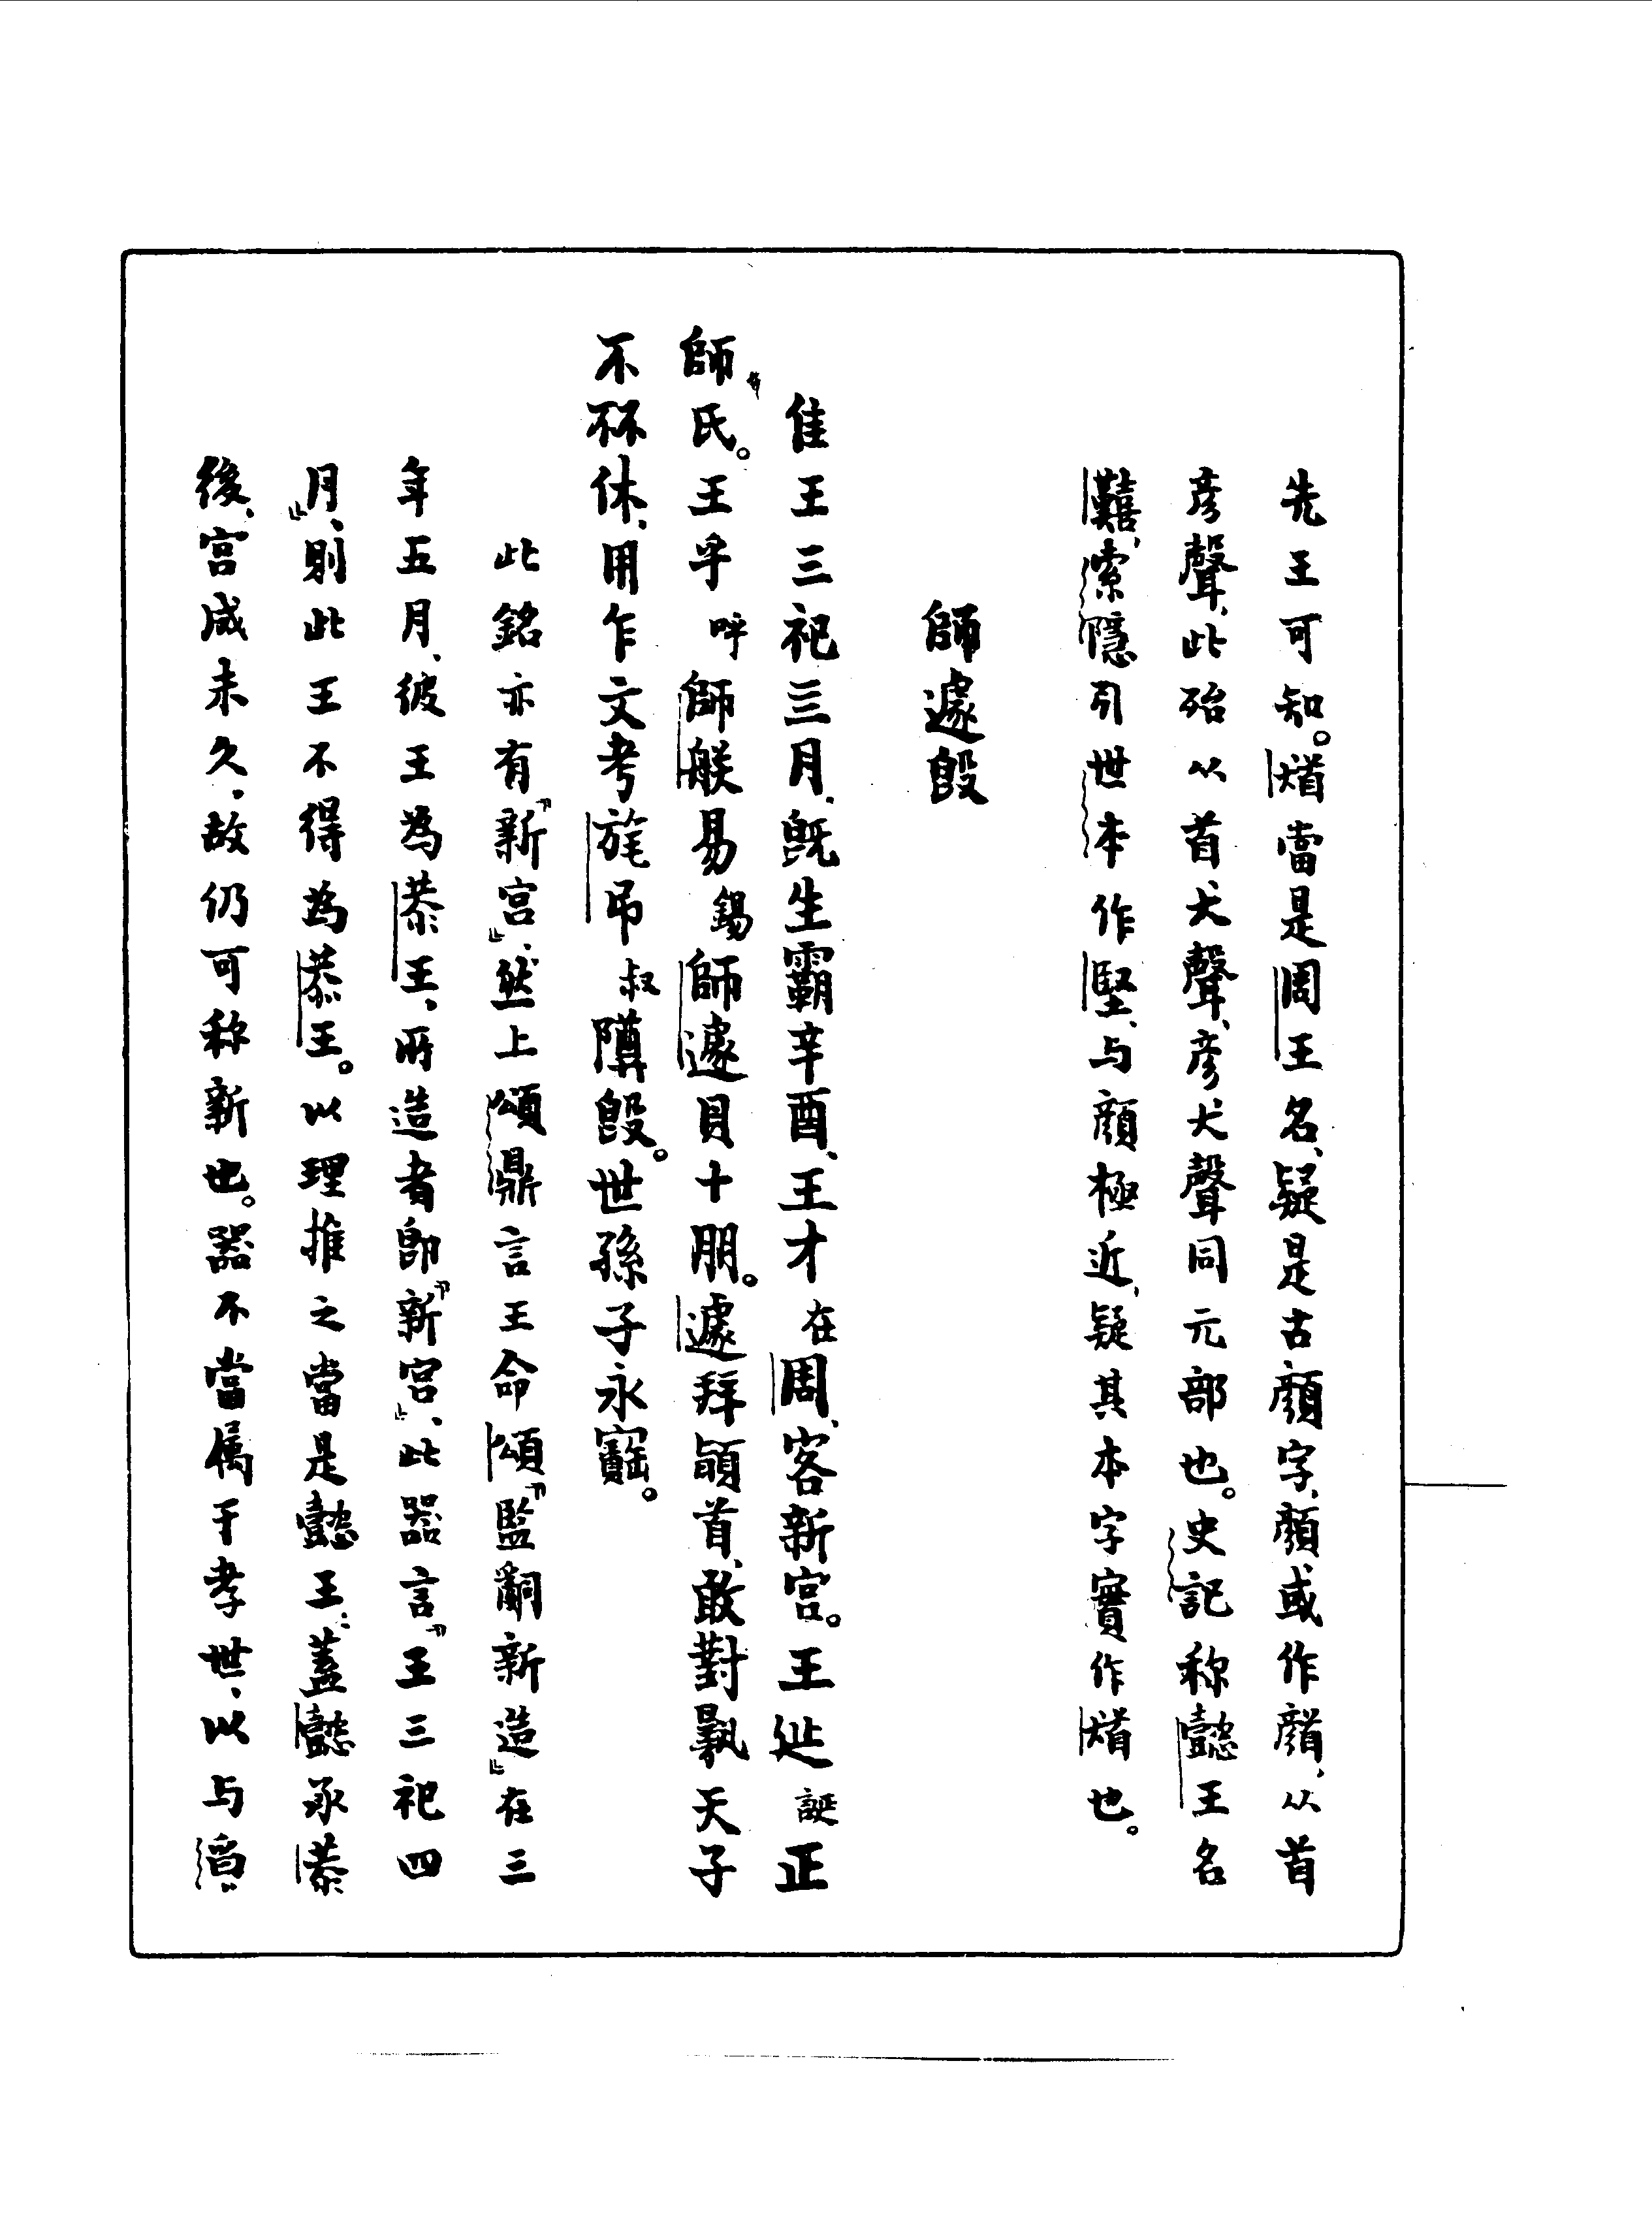 先王可知。㹎當是周王名、疑是古顏字、顏或作顔、从首
彥聲、此殆从首犬聲、彥犬聲同元部也。史記称懿王名
囏、索隱引世本作堅、与顏極近、疑其本字實作㹎也。
師遽𣪘
隹王三祀三月、旣生霸辛酉、王才在周、客新宮。王㢟誕正
師氏。王乎呼師朕易錫師遽貝十朋。遽拜𩒨首、敢對𩛥天子
不㔻休、用乍文考旄弔叔𨻰𣪘。世孫子永寶。
此銘亦有『新宮』、然上頌鼎言王命頌『監嗣新造』在三
年五月、彼王為恭王、所造者卽『新宮』、此器言『王三祀四
月』、則此王不得為恭王。以理推之當是懿王、蓋懿承恭
後、宮成未久、故仍可称新也。器不當属于孝世、以与